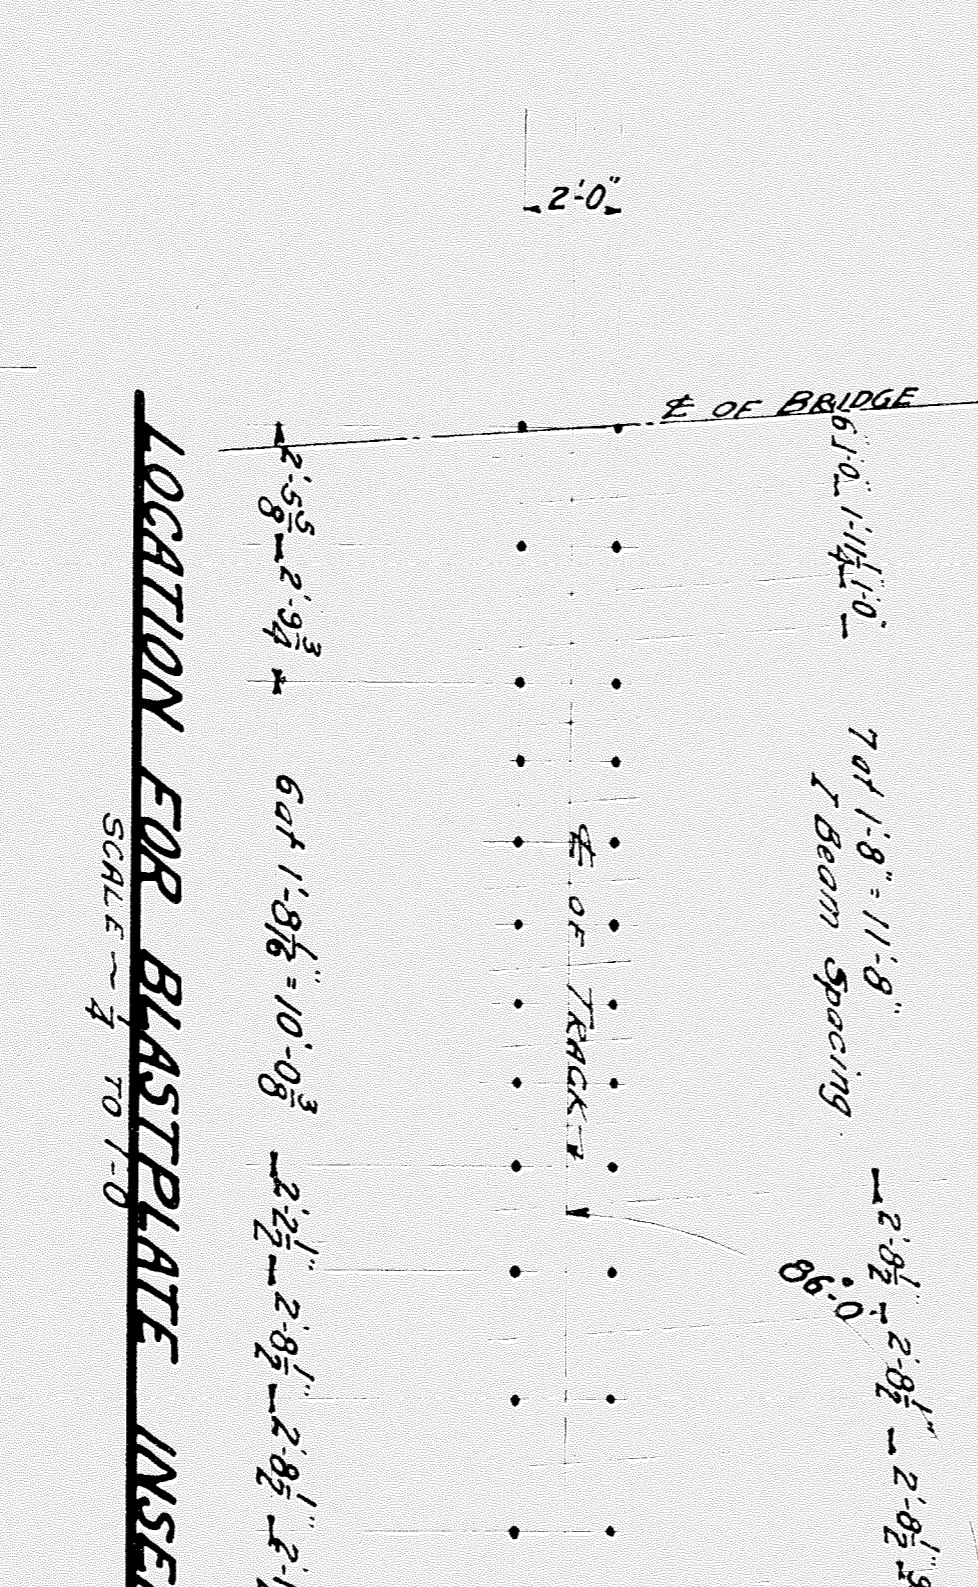 2'-0"
℄ OF BRIDGE
6" 1'-0" 1'-11 1/4" 1'-0"
7 at 1'-8" = 11'-8"
I Beam Spacing
2'-8 1/2" 2'-8 1/2" 2'-8 1/2"
86°-0'
℄ OF TRACK
2'-5 5/8 2'-9 3/4 6 at 1'-8 1/16" = 10'-0 3/8 2'-2 1/2" 2'-8 1/2" 2'-8 1/2"
LOCATION FOR BLASTPLATE
SCALE ~ 1/4 TO 1'-0